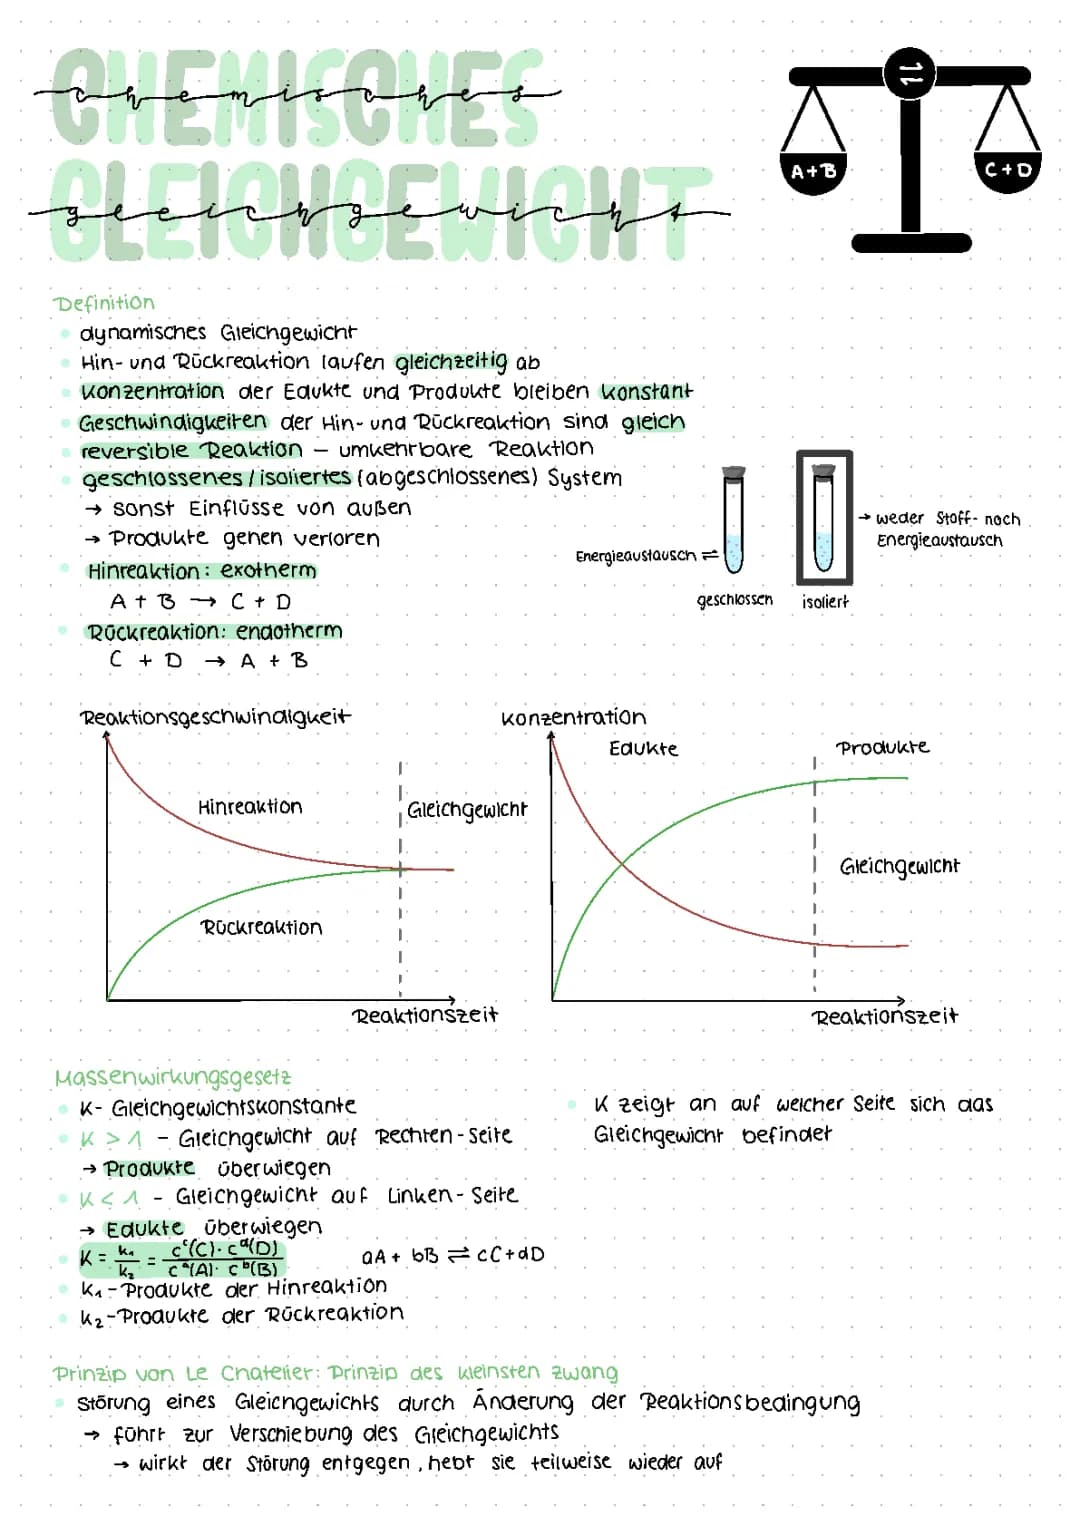 CHEMISCHES
chemisches
GLEICHGEWICHT
gleichgewicht
⇌
A+B
C+D
Definition
• dynamisches Gleichgewicht
• Hin- und Rückreaktion laufen gleichzeitig ab
• Konzentration der Edukte und Produkte bleiben konstant
• Geschwindigkeiten der Hin- und Rückreaktion sind gleich
• reversible Reaktion – umkehrbare Reaktion
• geschlossenes / isoliertes (abgeschlossenes) System
→ sonst Einflüsse von außen
→ Produkte gehen verloren
Energieaustausch ⇌
→ weder Stoff- noch
Energieaustausch
geschlossen
isoliert
• Hinreaktion: exotherm
A + B → C + D
• Rückreaktion: endotherm
C + D → A + B
Reaktionsgeschwindigkeit
Hinreaktion
Gleichgewicht
Rückreaktion
Reaktionszeit
Konzentration
Edukte
Produkte
Gleichgewicht
Reaktionszeit
Massenwirkungsgesetz
• K- Gleichgewichtskonstante
• K > 1 - Gleichgewicht auf Rechten-Seite
→ Produkte überwiegen
• K < 1 - Gleichgewicht auf Linken-Seite
→ Edukte überwiegen
• K = k₁/k₂ = cᶜ(C)· cᵈ(D) / cᵃ(A)· cᵇ(B) aA + bB ⇌ cC+dD
• k₁-Produkte der Hinreaktion
• k₂-Produkte der Rückreaktion
• K zeigt an auf welcher Seite sich das
Gleichgewicht befindet
Prinzip von Le Chatelier: Prinzip des kleinsten Zwang
• Störung eines Gleichgewichts durch Änderung der Reaktionsbedingung
→ führt zur Verschiebung des Gleichgewichts
→ wirkt der Störung entgegen, hebt sie teilweise wieder auf